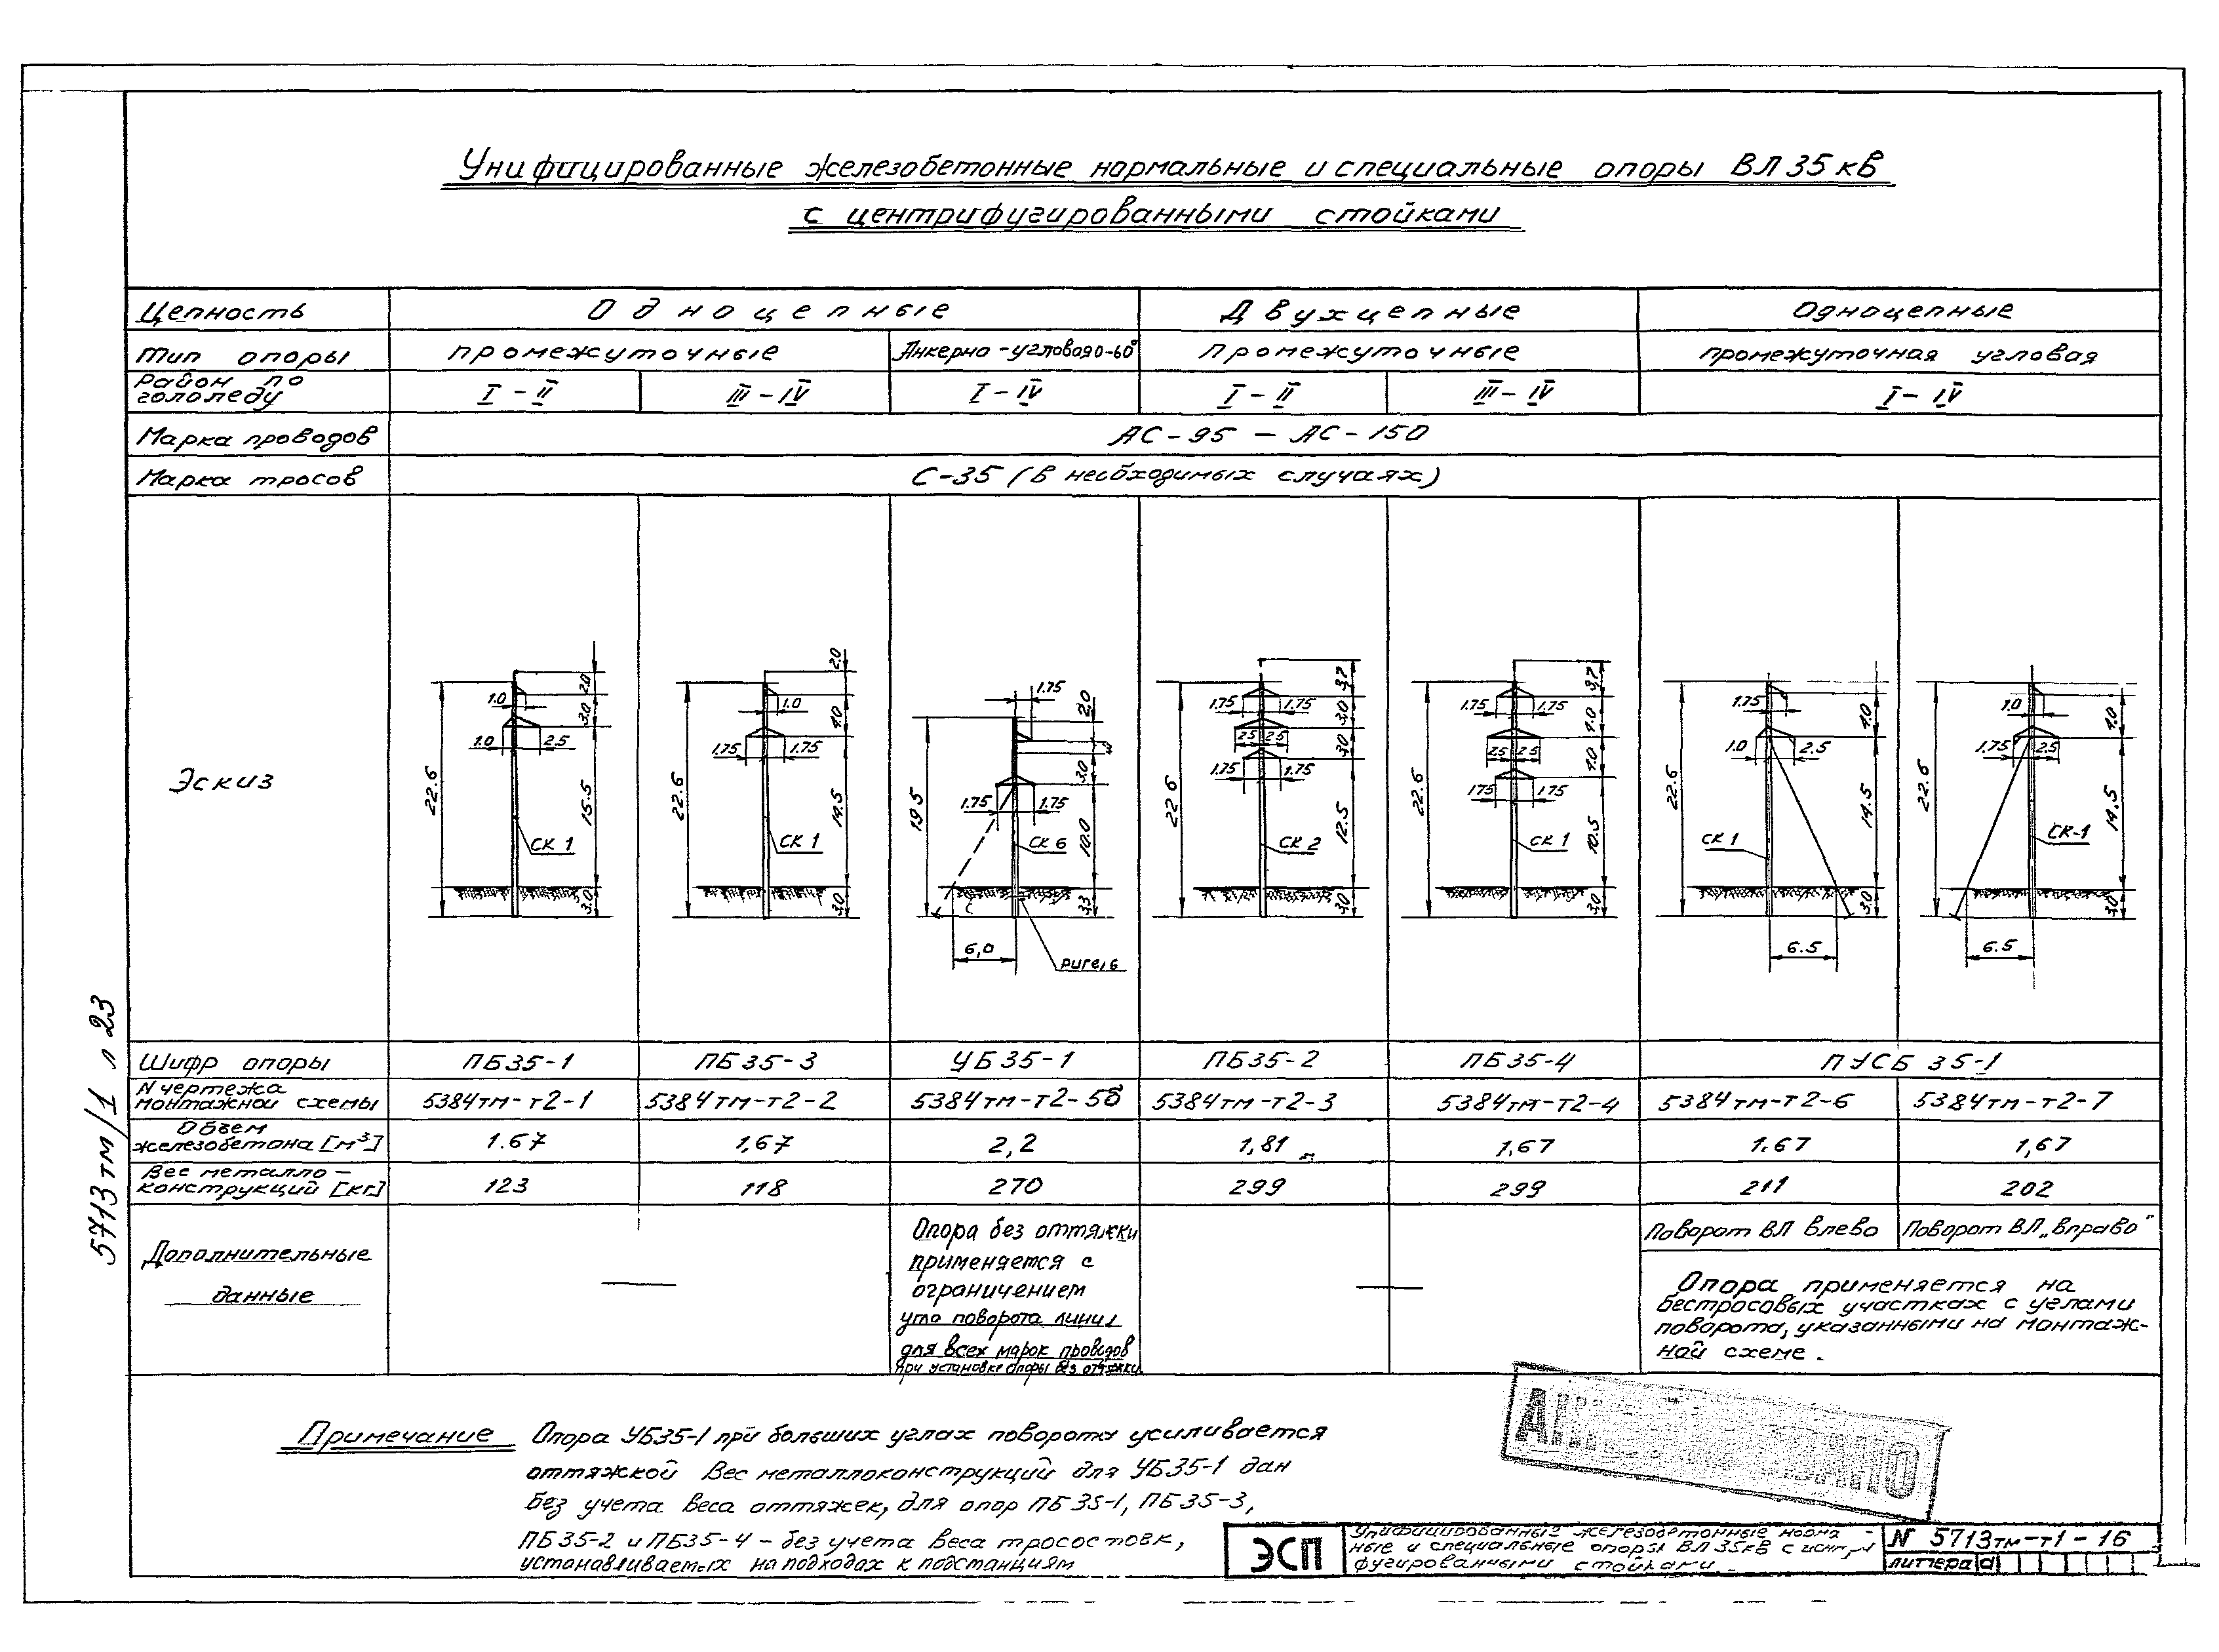 Унифицированные железобетонные нормальные и специальные опоры ВЛ 35 кВ
с центрифугированными стойками
Цепность Одноцепные Двухцепные Одноцепные
Тип опоры промежуточные Анкерно-угловая 0-60° Промежуточные промежуточная угловая
Район по гололеду I - II III - IV I - IV I - II III - IV I - IV
Марка проводов АС-95 - АС-150
Марка тросов С-35 (в необходимых случаях)
Эскиз
22.6 1.0 1.0 2.5 2.0 3.0 15.5 3.0 СК 1
22.6 1.0 1.75 1.75 2.0 4.0 14.5 3.0 СК 1
19.5 1.75 1.75 1.75 2.0 3.0 10.0 3.3 СК 6 6,0
22.6 1.75 1.75 2.5 2.5 1.75 1.75 3,7 3.0 3.0 12.5 3.0 СК 2
22.6 1.75 1.75 2.5 2.5 1.75 1.75 3,7 4.0 4.0 10.5 3.0 СК 1
22.6 1.75 1.0 2.5 4.0 14.5 3.0 СК 1 6.5
22.6 1.0 1.75 2.5 4.0 14.5 3.0 СК-1 6.5
Шифр опоры ПБ35-1 ПБ35-3 УБ35-1 ПБ35-2 ПБ35-4 ПУСБ 35-1
N чертежа
монтажной схемы 5384тм-т2-1 5384тм-т2-2 5384тм-т2-5б 5384тм-т2-3 5384тм-т2-4 5384тм-т2-6 5384тм-т2-7
Объем
железобетона [м³] 1.67 1,67 2,2 1,81 1,67 1.67 1,67
Вес металло-
конструкций [кг] 123 118 270 299 299 211 202
Дополнительные
данные
—
Опора без оттяжки
применяется с
ограничением
угла поворота линии
для всех марок проводов
при установке опоры без оттяжки.
—
Поворот ВЛ влево Поворот ВЛ „вправо"
Опора применяется на
бестросовых участках с углами
поворота, указанными на монтаж-
ной схеме.
Примечание Опора УБ35-1 при больших углах поворота усиливается
оттяжкой Вес металлоконструкций для УБ35-1 дан
без учета веса оттяжек, для опор ПБ35-1, ПБ35-3,
ПБ35-2 и ПБ35-4 - без учета веса тросостоек,
устанавливаемых на подходах к подстанциям
ЭСП
Унифицированные железобетонные норма-
ные и специальные опоры ВЛ 35кВ с
фугированными стойками.
N 5713тм-т1-16
литтера а
5713тм/1 л 23